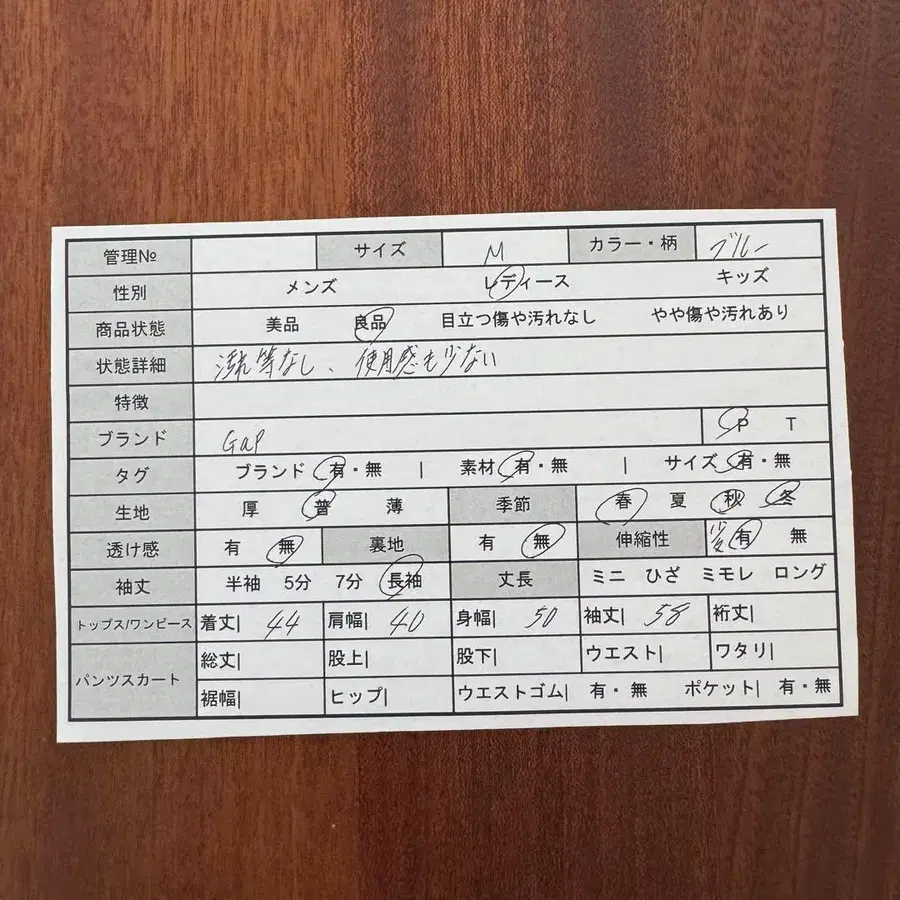 管理№ サイズ M カラー・柄 ブルー
性別 メンズ レディース キッズ
商品状態 美品 良品 目立つ傷や汚れなし やや傷や汚れあり
状態詳細 汚れ等なし、使用感も少ない
特徴
ブランド GaP P T
タグ ブランド 有・無 | 素材 有・無 | サイズ 有・無
生地 厚 普 薄 季節 春 夏 秋 冬
透け感 有 無 裏地 有 無 伸縮性 少々 有 無
袖丈 半袖 5分 7分 長袖 丈長 ミニ ひざ ミモレ ロング
トップス/ワンピース 着丈| 44 肩幅| 40 身幅| 50 袖丈| 58 裄丈|
パンツスカート 総丈| 股上| 股下| ウエスト| ワタリ|
裾幅| ヒップ| ウエストゴム| 有・無 ポケット| 有・無